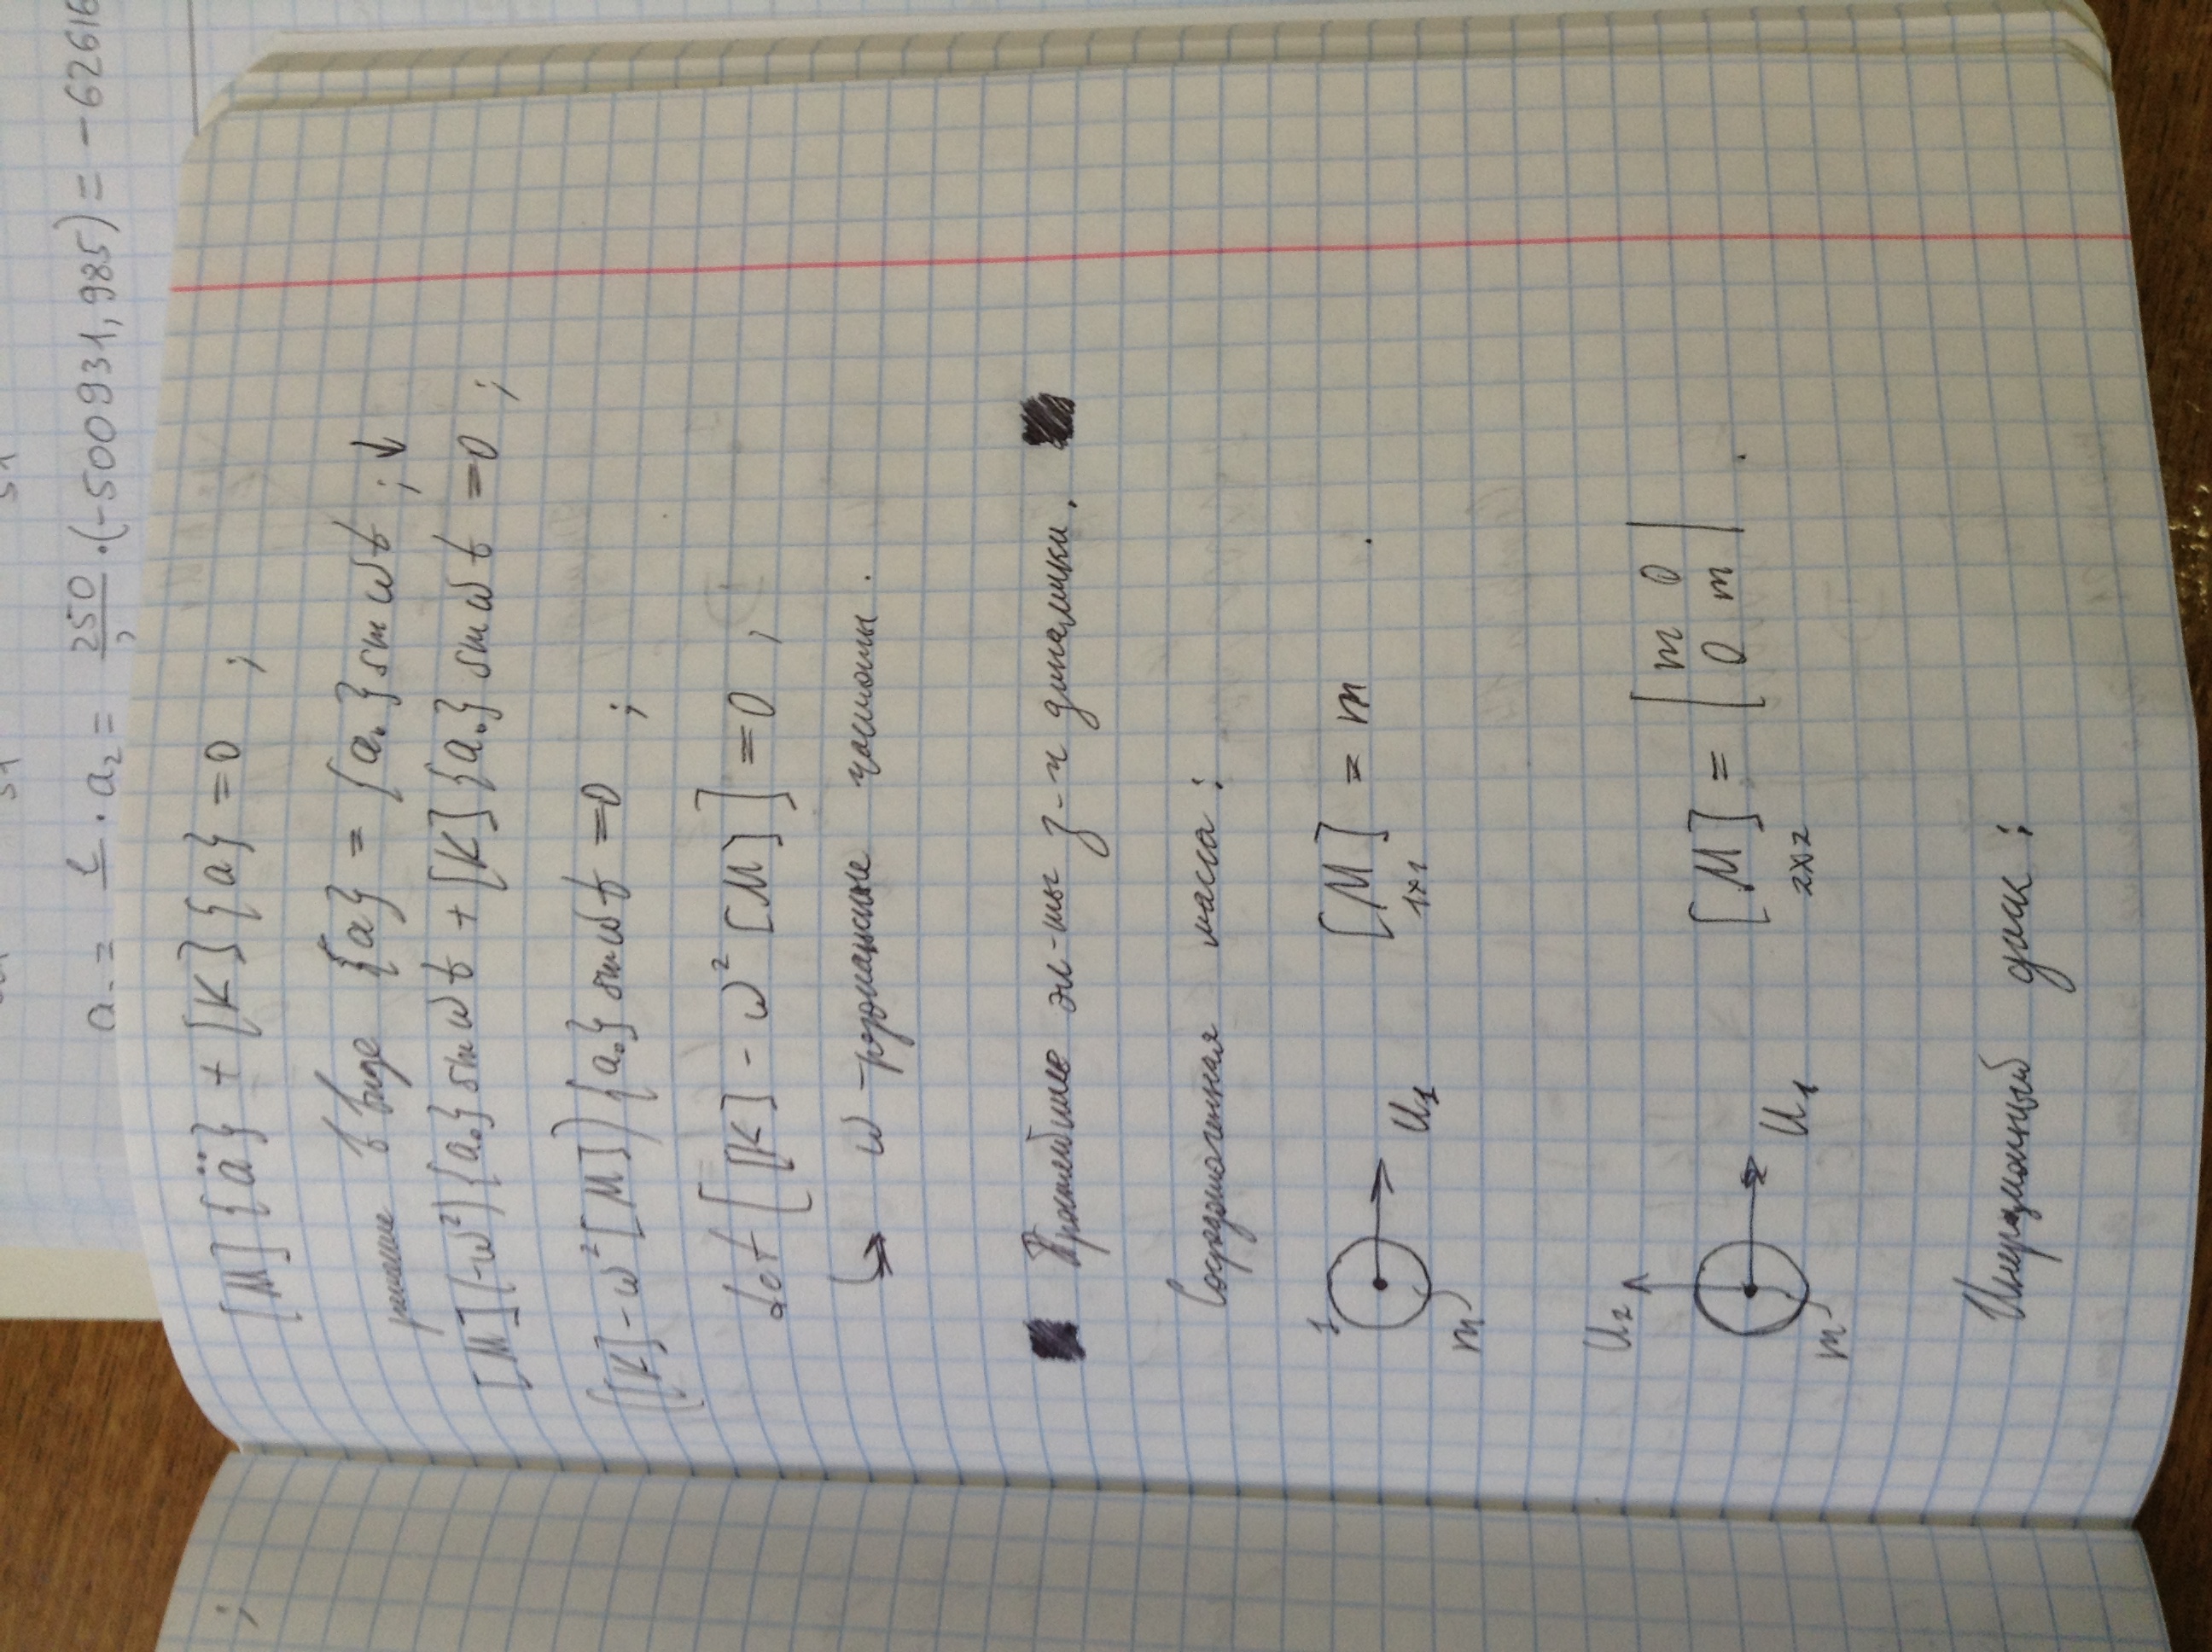 a₁ = ℓ · a₂ = 250 · (-500931,985) = - 62616
[M]{ä} + [K]{a} = 0 ;
решение в виде {a} = {a₀} sin ωt ; ↓
[M](-ω²){a₀} sin ωt + [K]{a₀} sin ωt = 0 ;
([K] - ω²[M]){a₀} sin ωt = 0 ;
det [[K] - ω²[M]] = 0 ;
↳ ω - резонансные частоты.
Простейшие эл-ты з-ч динамики.
Сосредоточенная масса:
1 m U₁ [M] = m .
1x1
U₂ m U₁ [M] = [m 0
0 m] .
2x2
Инерционный диск:
;